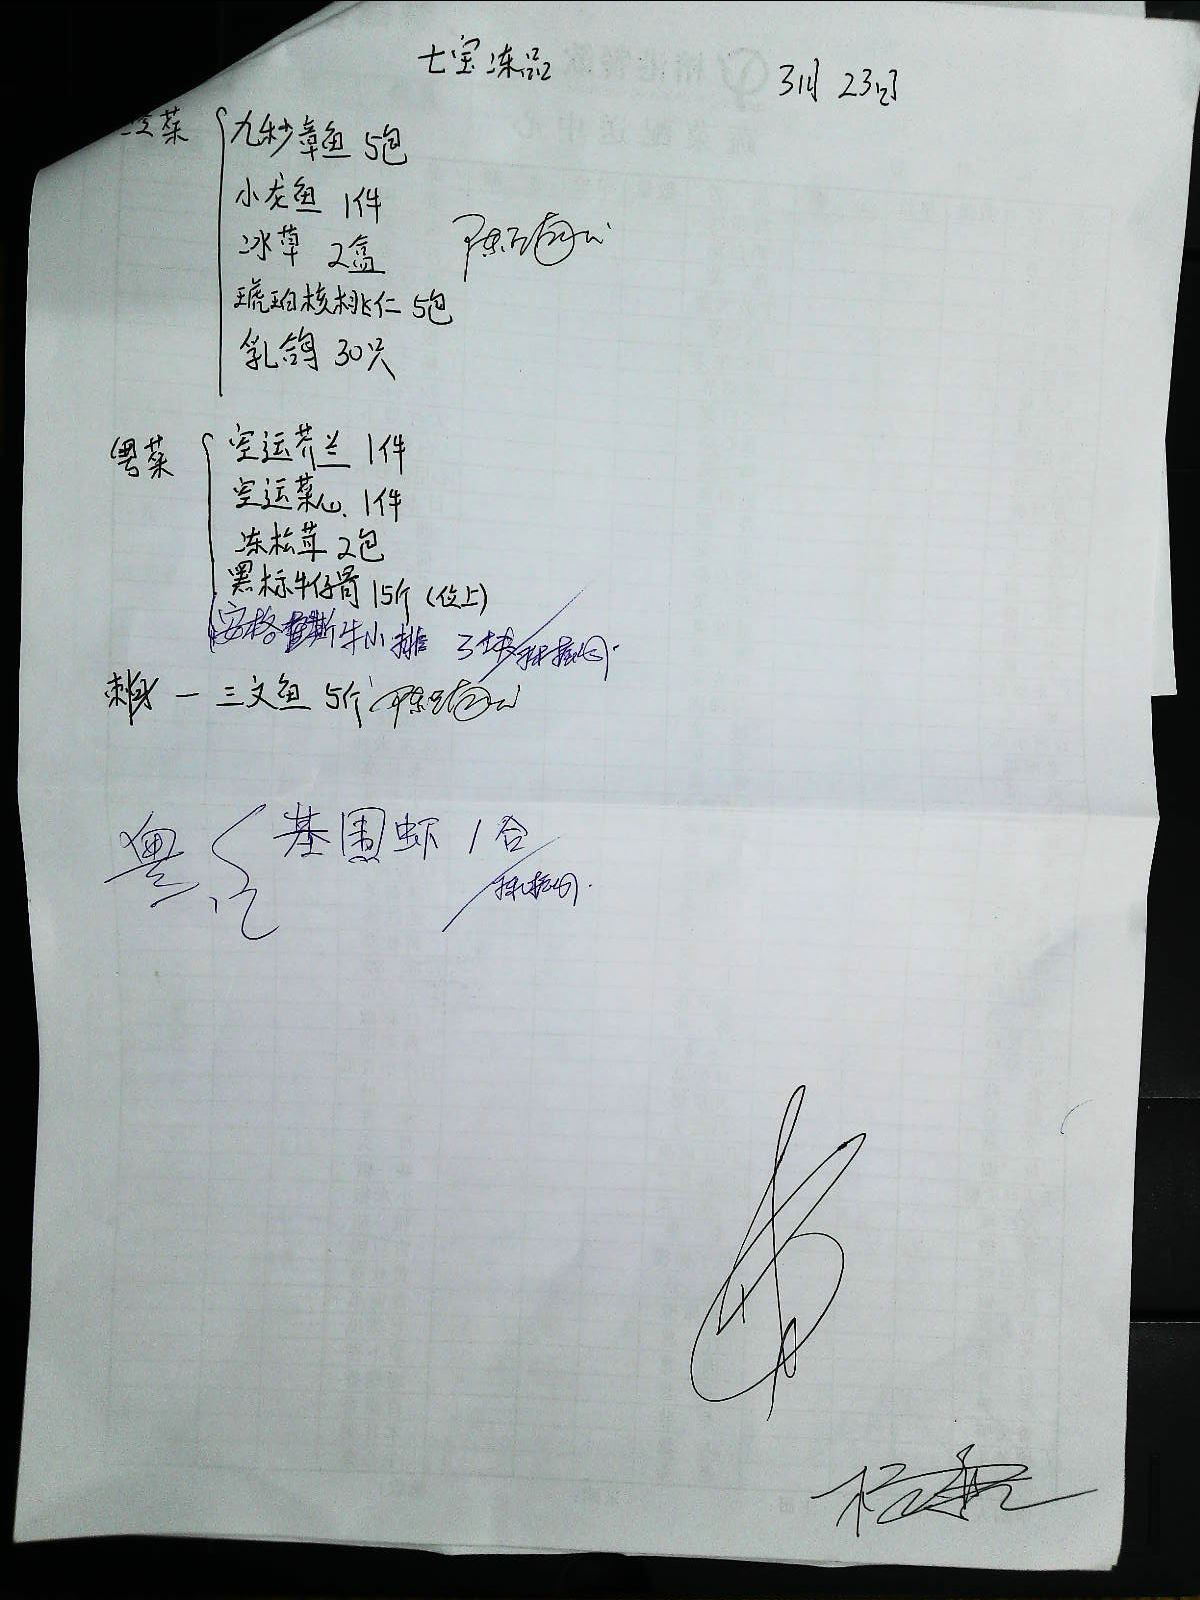 七宝冻品 3月23日
菜 九秒章鱼 5包
小龙鱼 1件
冰草 2盒
琥珀核桃仁 5包
乳鸽 30只
粤菜 空运芥兰 1件
空运菜心 1件
冻松茸 2包
黑标牛仔骨 15斤(位上)
安格斯牛小排 3块
刺身 一 三文鱼 5斤
粤 基围虾 1合